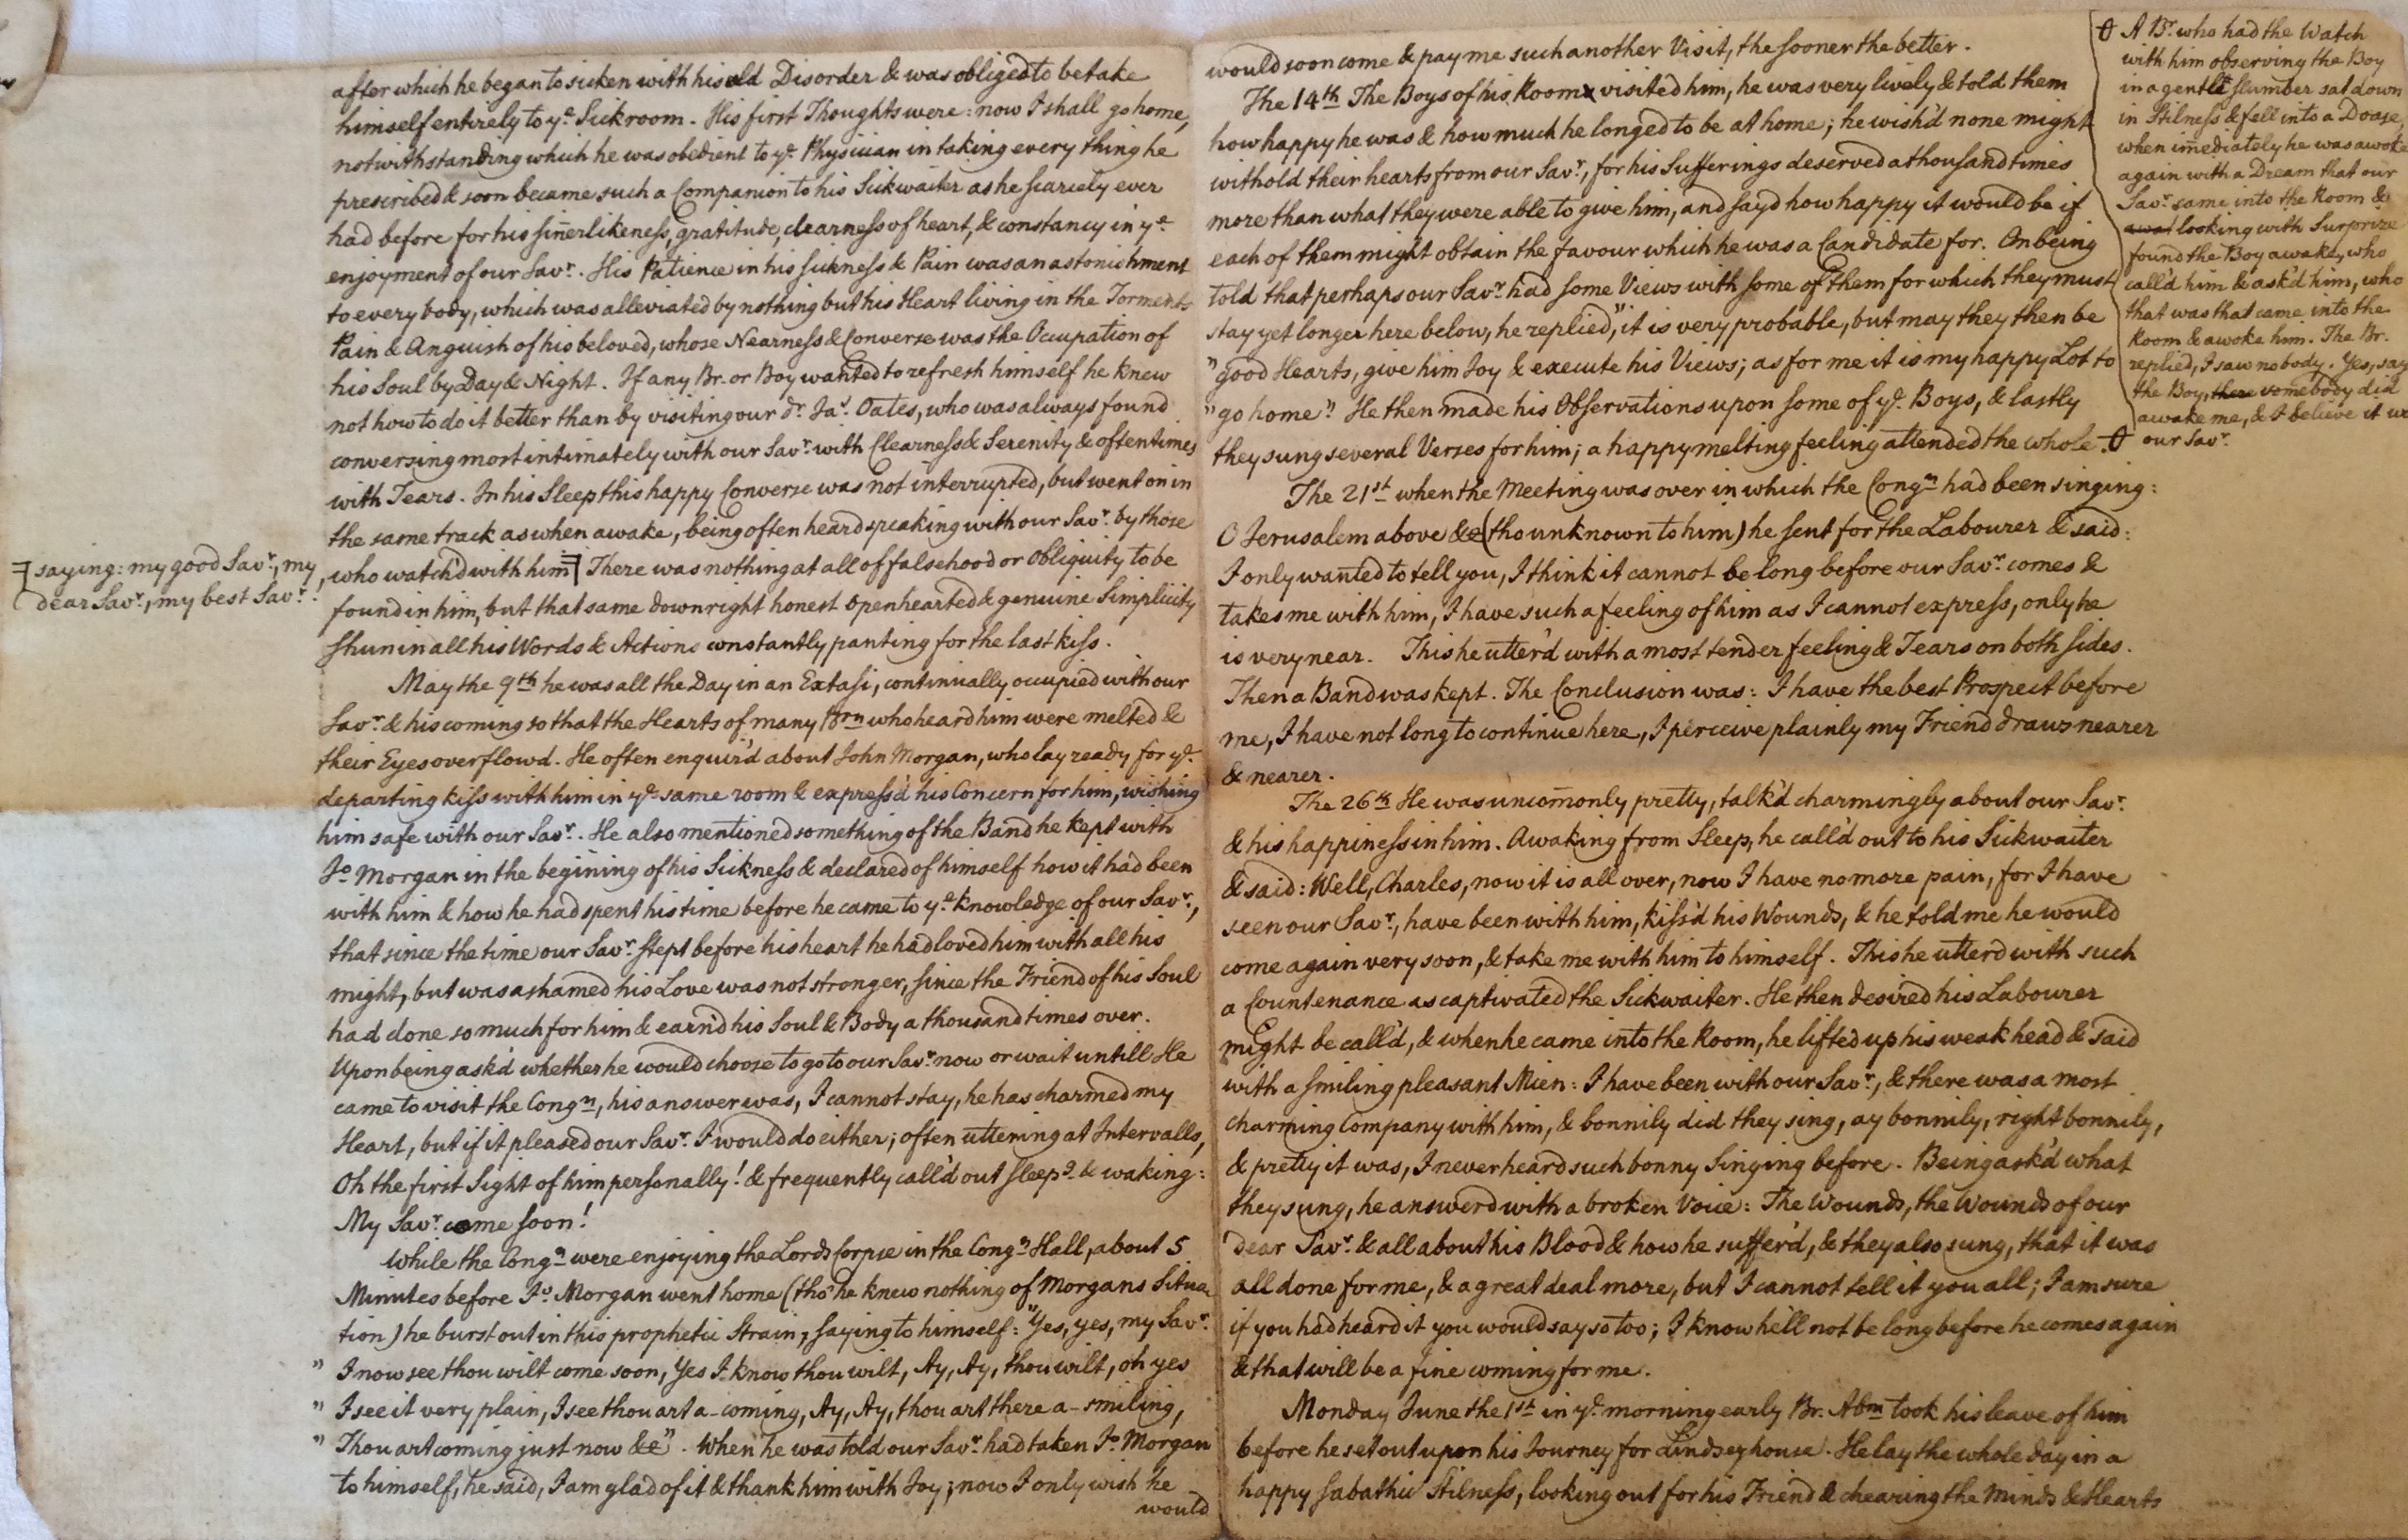 after which he began to sicken with his old Disorder & was obliged to betake
himself entirely to ye. Sickroom. His first Thoughts were: now I shall go home,
notwithstanding which he was obedient to ye. Physician in taking every thing he
prescribed & soon became such a Companion to his Sickwaiter as he scarcely ever
had before for his sin̄erlikeness, gratitude, clearness of heart, & constancy in ye.
enjoyment of our Savr. His Patience in his sickness & Pain was an astonishment
to every body, which was alleviated by nothing but his Heart living in the Torments
Pain & Anguish of his beloved, whose Nearness & Converse was the Occupation of
his Soul by Day & Night. If any Br. or Boy wanted to refresh himself he knew
not how to do it better than by visiting our dr. Jas. Oates, who was always found
conversing most intimately with our Savr. with Clearness & Serenity & oftentimes
with Tears. In his Sleep this happy Converse was not interrupted, but went on in
the same track as when awake, being often heard speaking with our Savr. by those
who watch'd with him There was nothing at all of falsehood or Obliquity to be
saying: my good Savr., my
dear Savr., my best Savr.
found in him, but that same downright honest openhearted & genuine Simplicity
shun in all his Words & Actions constantly panting for the last kiss.
May the 9th he was all the Day in an Extasi, continually occupied with our
Savr. & his coming so that the Hearts of many Brn who heard him were melted &
their Eyes overflowd. He often enquir'd about John Morgan, who lay ready for ye.
departing kiss with him in ye. same room & express'd his Concern for him, wishing
him safe with our Savr. He also mentioned something of the Band he kept with
Jo. Morgan in the begining of his Sickness & declared of himself how it had been
with him & how he had spent his time before he came to ye. knowledge of our Savr.,
that since the time our Savr. stept before his heart he had loved him with all his
might, but was ashamed his Love was not stronger, since the Friend of his Soul
had done so much for him & earn'd his Soul & Body a thousand times over.
Upon being ask'd whether he would choose to go to our Savr. now or wait untill He
came to visit the Congn., his answer was, I cannot stay, he has charmed my
Heart, but if it pleased our Savr. I would do either; often uttering at Intervalls,
Oh the first Sight of him personally! & frequently call'd out sleepg. & waking:
My Savr. come soon!
While the Congn. were enjoying the Lords Corpse in the Congn. Hall, about 5
Minutes before Jo. Morgan went home (tho' he knew nothing of Morgans Situa
tion) he burst out in this prophetic Strain, saying to himself: "Yes, yes, my Savr.
" I now see thou wilt come soon, Yes I know thou wilt, Ay, Ay, thou wilt, oh yes
" I see it very plain, I see thou art a-coming, Ay, Ay, thou art there a-smiling,
" Thou art coming just now &c". When he was told our Savr. had taken Jo. Morgan
to himself, he said, I am glad of it & thank him with Joy; now I only wish he
would
would soon come & pay me such another Visit, the sooner the better.
The 14th The Boys of his Room visited him, he was very lively & told them
how happy he was & how much he longed to be at home; he wish'd none might
withold their hearts from our Savr., for his Sufferings deserved a thousand times
more than what they were able to give him, and sayd how happy it would be if
each of them might obtain the favour which he was a Candidate for. On being
told that perhaps our Savr. had some Views with some of them for which they must
stay yet longer here below, he replied, "it is very probable, but may they then be
" good Hearts, give him Joy & execute his Views; as for me it is my happy Lot to
" go home". He then made his Observations upon some of ye. Boys, & lastly
they sung several Verses for him; a happy melting feeling attended the whole.
A Br. who had the Watch
with him observing the Boy
in a gentle slumber sat down
in Stilness & fell into a Doaze,
when im̄ediately he was awoke
again with a Dream that our
Savr. came into the Room &
looking with Surprize
found the Boy awake, who
call'd him & ask'd him, who
that was that came into the
Room & awoke him. The Br.
replied, I saw nobody. Yes, say
the Boy, there somebody did
awake me, & I believe it wa
our Savr.
The 21st when the Meeting was over in which the Congn. had been singing:
O Jerusalem above &c (tho unknown to him) he sent for the Labourer & said:
I only wanted to tell you, I think it cannot be long before our Savr. comes &
takes me with him, I have such a feeling of him as I cannot express, only he
is very near. This he utter'd with a most tender feeling & Tears on both sides.
Then a Band was kept. The Conclusion was: I have the best Prospect before
me, I have not long to continue here, I perceive plainly my Friend draws nearer
& nearer.
The 26th He was uncom̄only pretty, talk'd charmingly about our Savr.
& his happiness in him. Awaking from Sleep, he call'd out to his Sickwaiter
& said: Well, Charles, now it is all over, now I have no more pain, for I have
seen our Savr., have been with him, kiss'd his Wounds, & he told me he would
come again very soon, & take me with him to himself. This he utterd with such
a Countenance as captivated the Sickwaiter. He then desired his Labourer
might be call'd, & when he came into the Room, he lifted up his weak head & said
with a smiling pleasant Mien: I have been with our Savr., & there was a most
charming Company with him, & bonnily did they sing, ay bonnily, right bonnily,
& pretty it was, I never heard such bonny Singing before. Being ask'd what
they sung, he answerd with a broken Voice: The Wounds, the Wounds of our
dear Savr. & all about his Blood & how he suffer'd, & they also sung, that it was
all done for me, & a great deal more, but I cannot tell it you all; I am sure
if you had heard it you would say so too; I know he'll not be long before he comes again
& that will be a fine coming for me.
Monday June the 1st in ye. morning early Br. Abm took his leave of him
before he set out upon his Journey for Lindseyhouse. He lay the whole day in a
happy sabathic Stilness, looking out for his Friend & chearing the Minds & Hearts